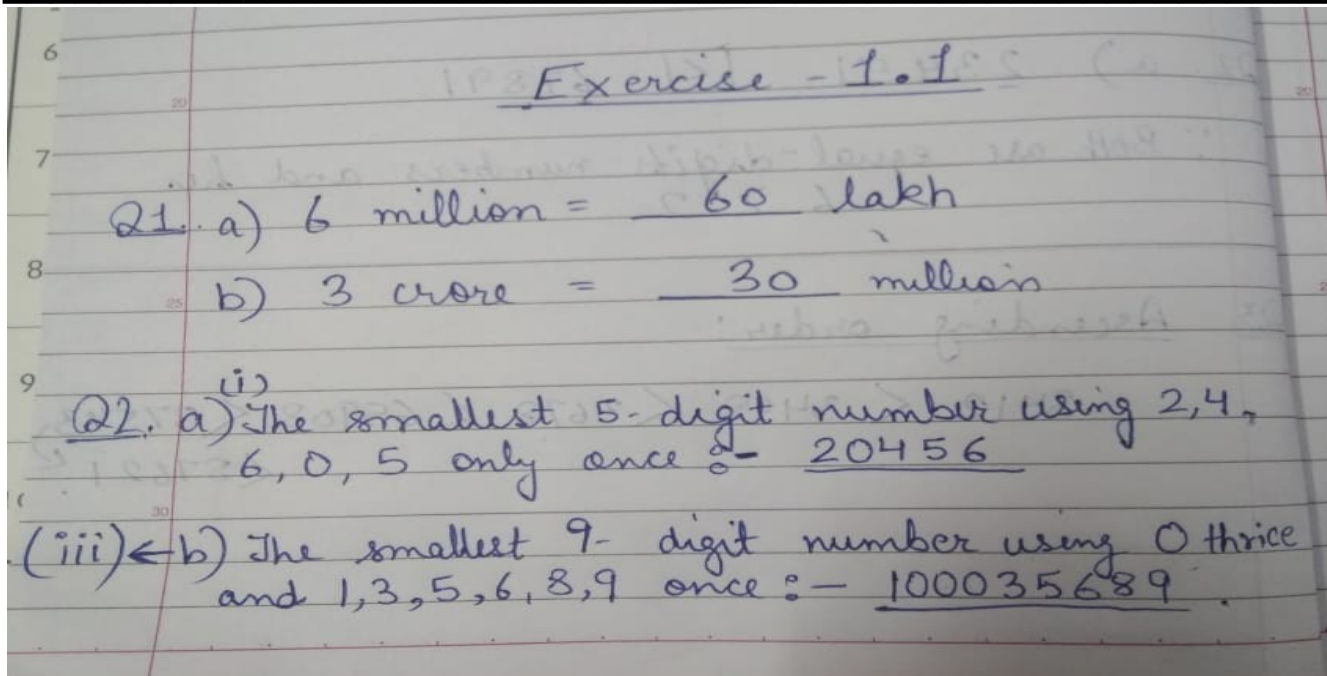 Exercise - 1.1
Q1. a) 6 million = 60 lakh
b) 3 crore = 30 million
(i)
Q2. a) The smallest 5-digit number using 2,4,
6, 0, 5 only once :- 20456
(iii) ← b) The smallest 9- digit number using 0 thrice
and 1,3,5,6,8,9 once :- 100035689.
6
7
8
9
20
25
30
20